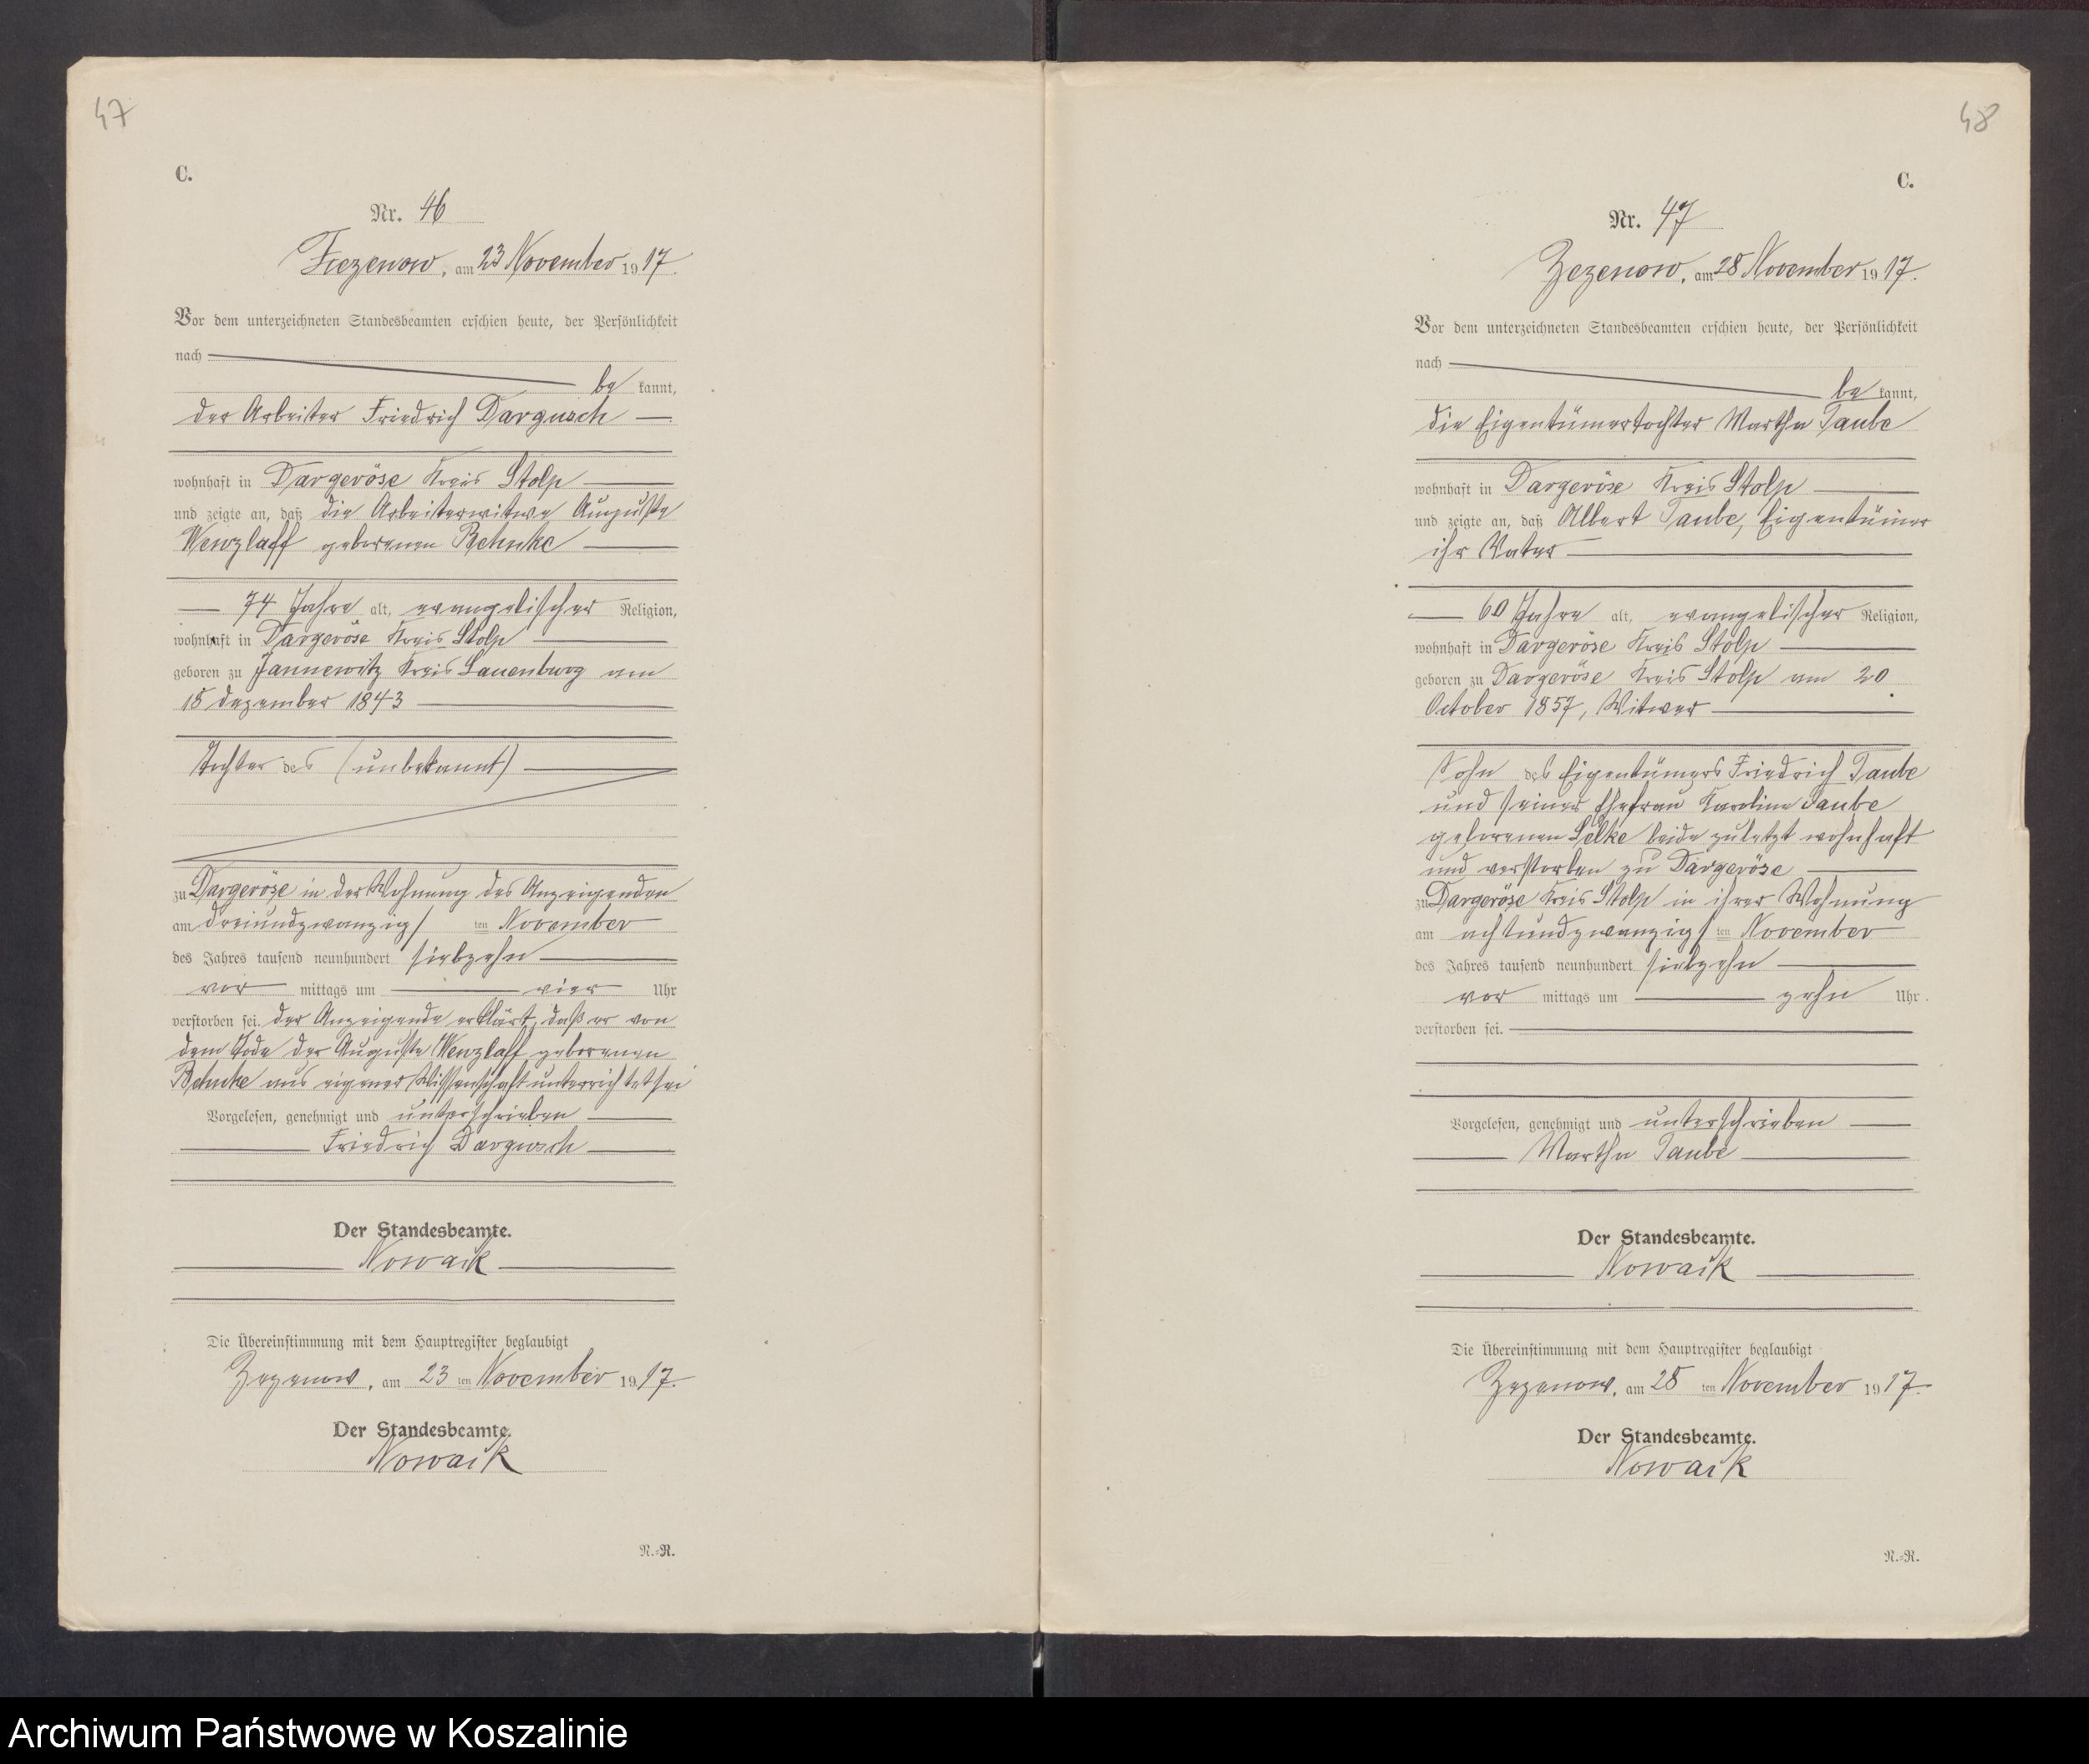 47
C.
Nr. 46
Zezenow, am 23 November 1917.
Vor dem unterzeichneten Standesbeamten erschien heute, der Persönlichkeit
nach
be kannt,
der Arbeiter Friedrich Dargusch
wohnhaft in Dargeröse Kreis Stolp
und zeigte an, daß die Arbeiterwitwe Auguste
Wenzlaff geborenen Behnke
74 Jahre alt, evangelischer Religion,
wohnhaft in Dargeröse Kreis Stolp
geboren zu Jannewitz Kreis Lauenburg am
18 Dezember 1843
Tochter des (unbekannt)
zu Dargeröse in der Wohnung des Anzeigenden
am dreiundzwanzig/ ten November
des Jahres tausend neunhundert siebzehn
vor mittags um vier Uhr
verstorben sei. der Anzeigende erklärt, daß er von
dem Tode der Auguste Wenzlaff geborenen
Behnke aus eigener Wissenschaft unterrichtet sei
Vorgelesen, genehmigt und unterschrieben
Friedrich Dargusch
Der Standesbeamte.
Nowack
Die Übereinstimmung mit dem Hauptregister beglaubigt
Zezenow, am 23 ten November 1917.
Der Standesbeamte.
Nowack
N.=R.
48
C.
Nr. 47
Zezenow, am 28 November 1917.
Vor dem unterzeichneten Standesbeamten erschien heute, der Persönlichkeit
nach
be kannt,
die Eigentümertochter Martha Taube
wohnhaft in Dargeröse Kreis Stolp
und zeigte an, daß Albert Taube, Eigentümer
ihr Vater
60 Jahre alt, evangelischer Religion,
wohnhaft in Dargeröse Kreis Stolp
geboren zu Dargeröse Kreis Stolp am 20
October 1857, Witwer
Sohn des Eigentümers Friedrich Taube
und seiner Ehefrau Karoline Taube
geborenen Selke beide zuletzt wohnhaft
und verstorben zu Dargeröse
zu Dargeröse Kreis Stolp in ihrer Wohnung
am achtundzwanzig/ ten November
des Jahres tausend neunhundert siebzehn
vor mittags um zehn Uhr
verstorben sei.
Vorgelesen, genehmigt und unterschrieben
Martha Taube
Der Standesbeamte.
Nowack
Die Übereinstimmung mit dem Hauptregister beglaubigt
Zezenow, am 28 ten November 1917.
Der Standesbeamte.
Nowack
N.=R.
Archiwum Państwowe w Koszalinie